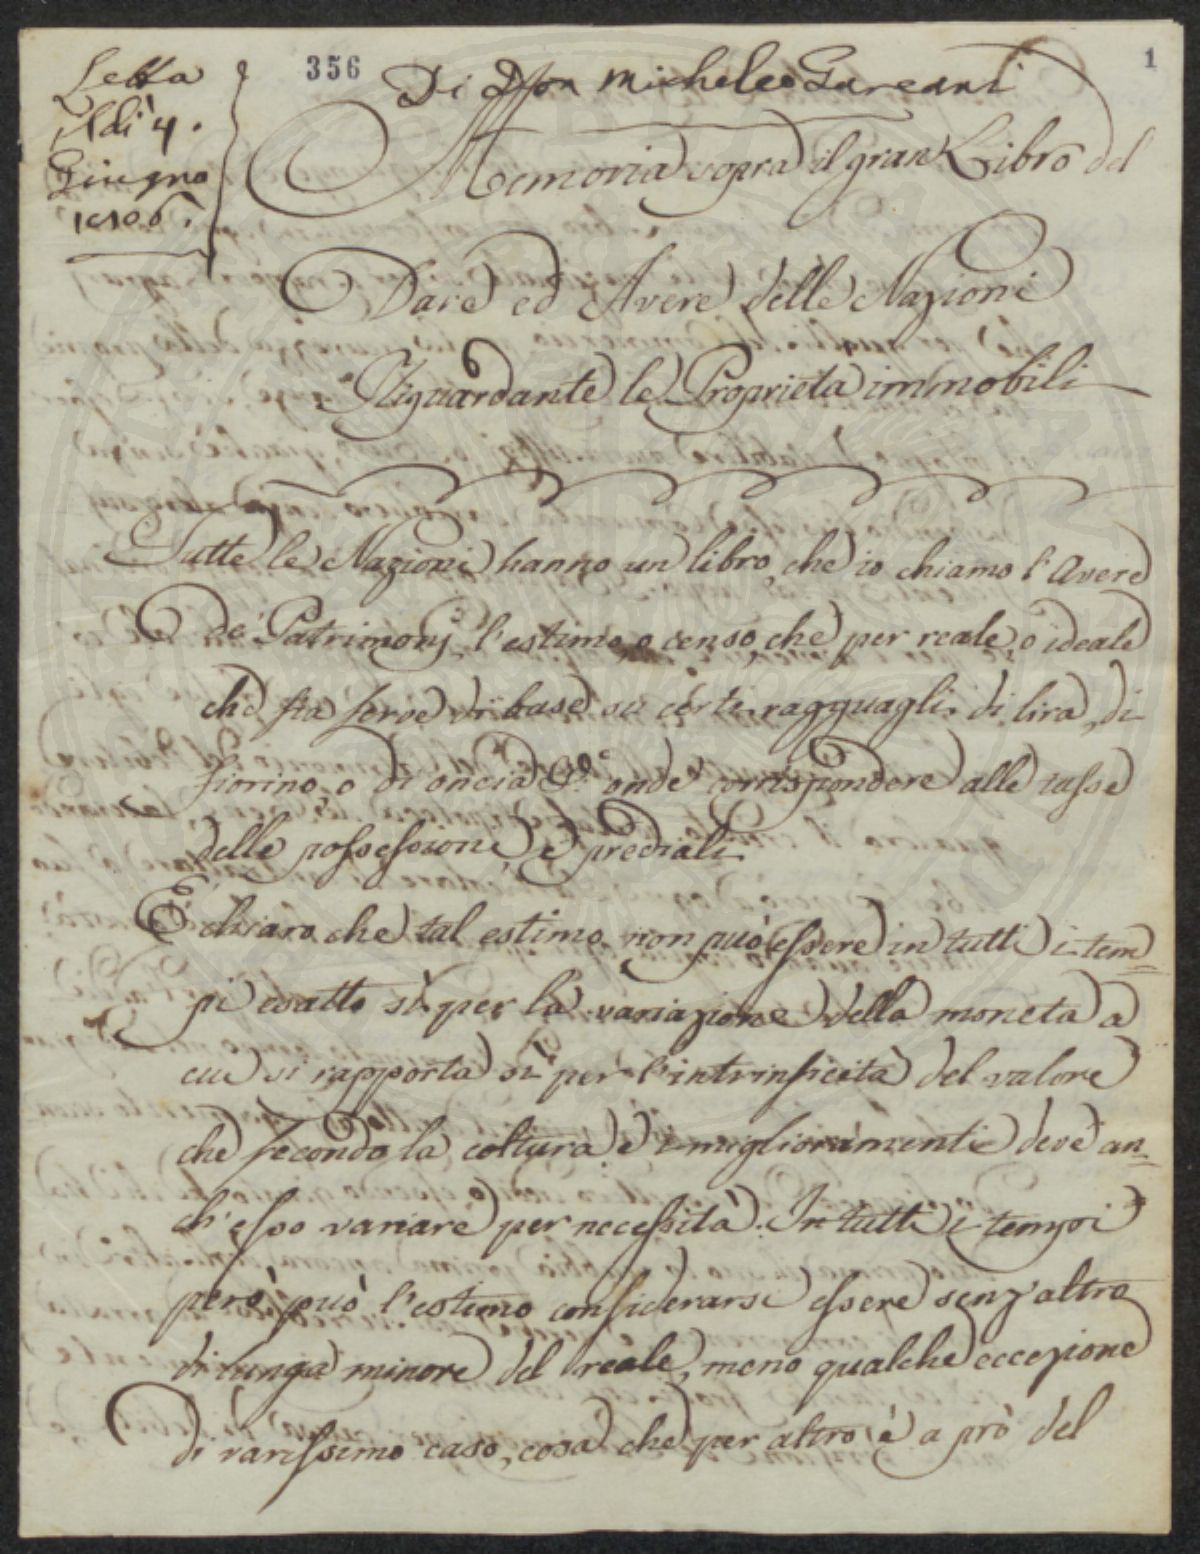 Letta
il dì 4.
Giugno
1806.
356
1
Di Don Michele
Memoria sopra il gran Libro del
Dare ed Avere delle Nazioni
Riguardante le Proprietà immobili
Tutte le Nazioni hanno un libro, che io chiamo l'Avere
de' Patrimonj, l'estimo, o censo, che per reale, o ideale
che sia serve di base su certi ragguagli di lira, di
fiorino, o di oncia &.ª onde corrispondere alle tasse
delle possessioni e prediali.
È chiaro che tal estimo non può essere in tutti i tem=
pi esatto sì per la variazione della moneta a
cui si rapporta sì per l'intrinsicità del valore
che secondo la coltura e i miglioramenti deve an=
ch'esso variare per necessità. In tutti i tempi
però può l'estimo considerarsi essere senz'altro
di lunga minore del reale, meno qualche eccezione
di rarissimo caso, cosa che per altro è a prò del